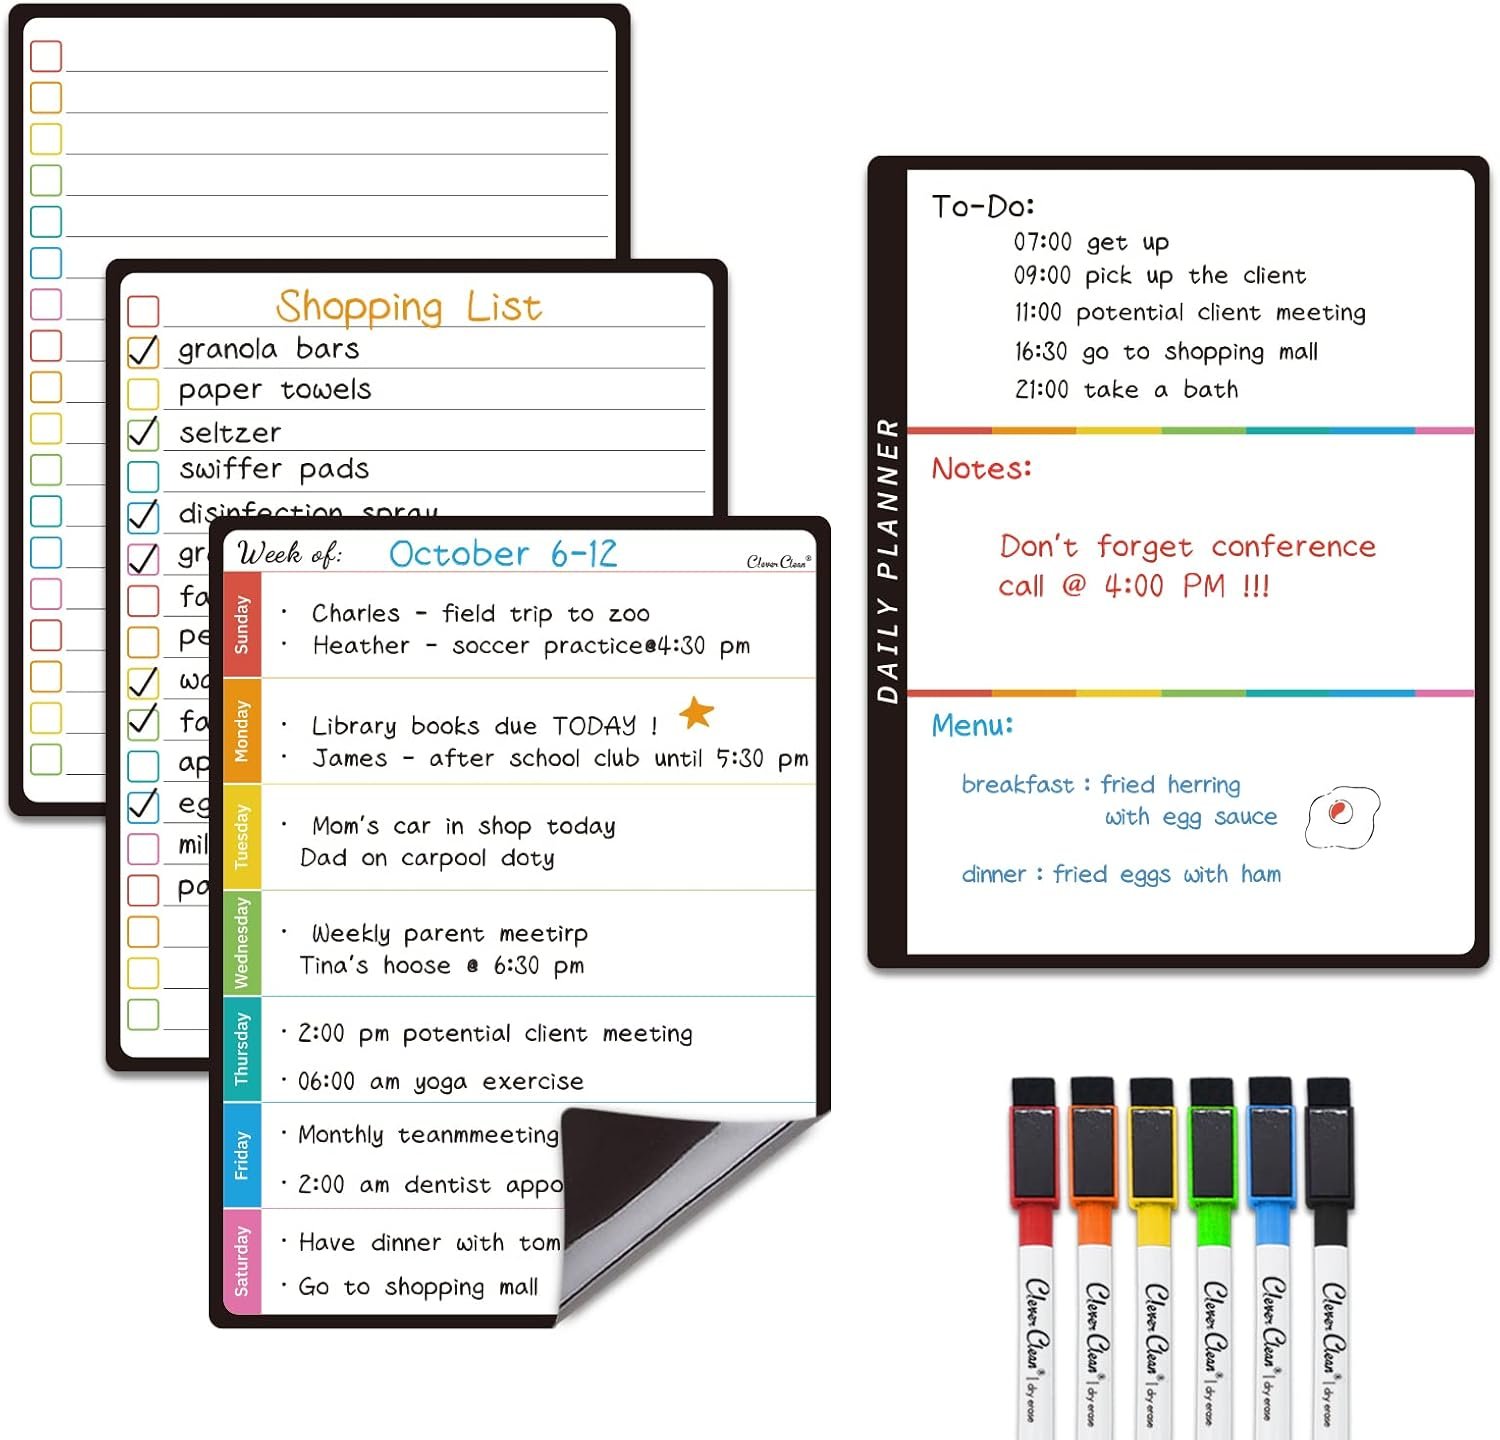 Shopping List
granola bars
paper towels
seltzer
swiffer pads
disinfection spray
Week of: October 6-12
Clever Clean®
Sunday
· Charles - field trip to zoo
· Heather - soccer practice@4:30 pm
Monday
· Library books due TODAY !
· James - after school club until 5:30 pm
Tuesday
· Mom's car in shop today
Dad on carpool doty
Wednesday
· Weekly parent meetirp
Tina's hoose @ 6:30 pm
Thursday
· 2:00 pm potential client meeting
· 06:00 am yoga exercise
Friday
· Monthly teanmmeeting
· 2:00 am dentist appo
Saturday
· Have dinner with tom
· Go to shopping mall
DAILY PLANNER
To-Do:
07:00 get up
09:00 pick up the client
11:00 potential client meeting
16:30 go to shopping mall
21:00 take a bath
Notes:
Don't forget conference
call @ 4:00 PM !!!
Menu:
breakfast : fried herring
with egg sauce
dinner : fried eggs with ham
Clever Clean® | dry erase
Clever Clean® | dry erase
Clever Clean® | dry erase
Clever Clean® | dry erase
Clever Clean® | dry erase
Clever Clean® | dry erase